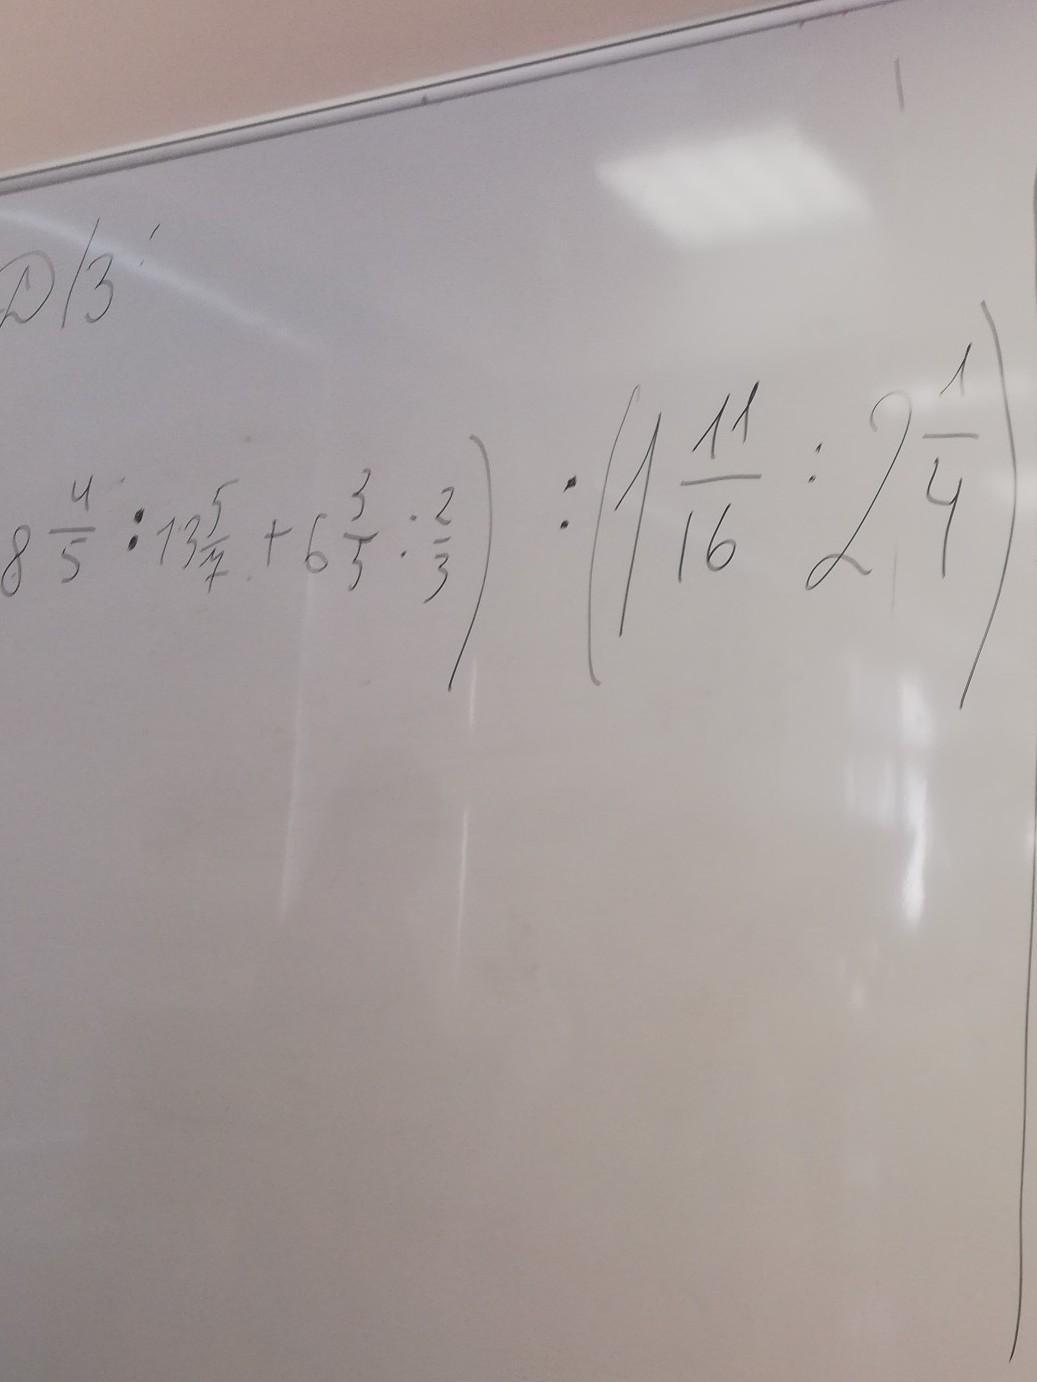 Д/З
8 4/5 : 13 5/7 + 6 3/5 : 2/3) : (1 11/16 : 2 1/4)